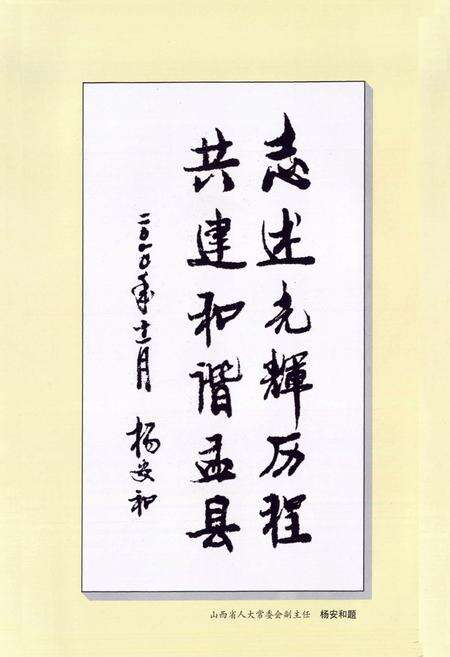 志述光輝历程
共建和谐盂县
二〇一〇年十二月
杨安和
山西省人大常委会副主任 杨安和题